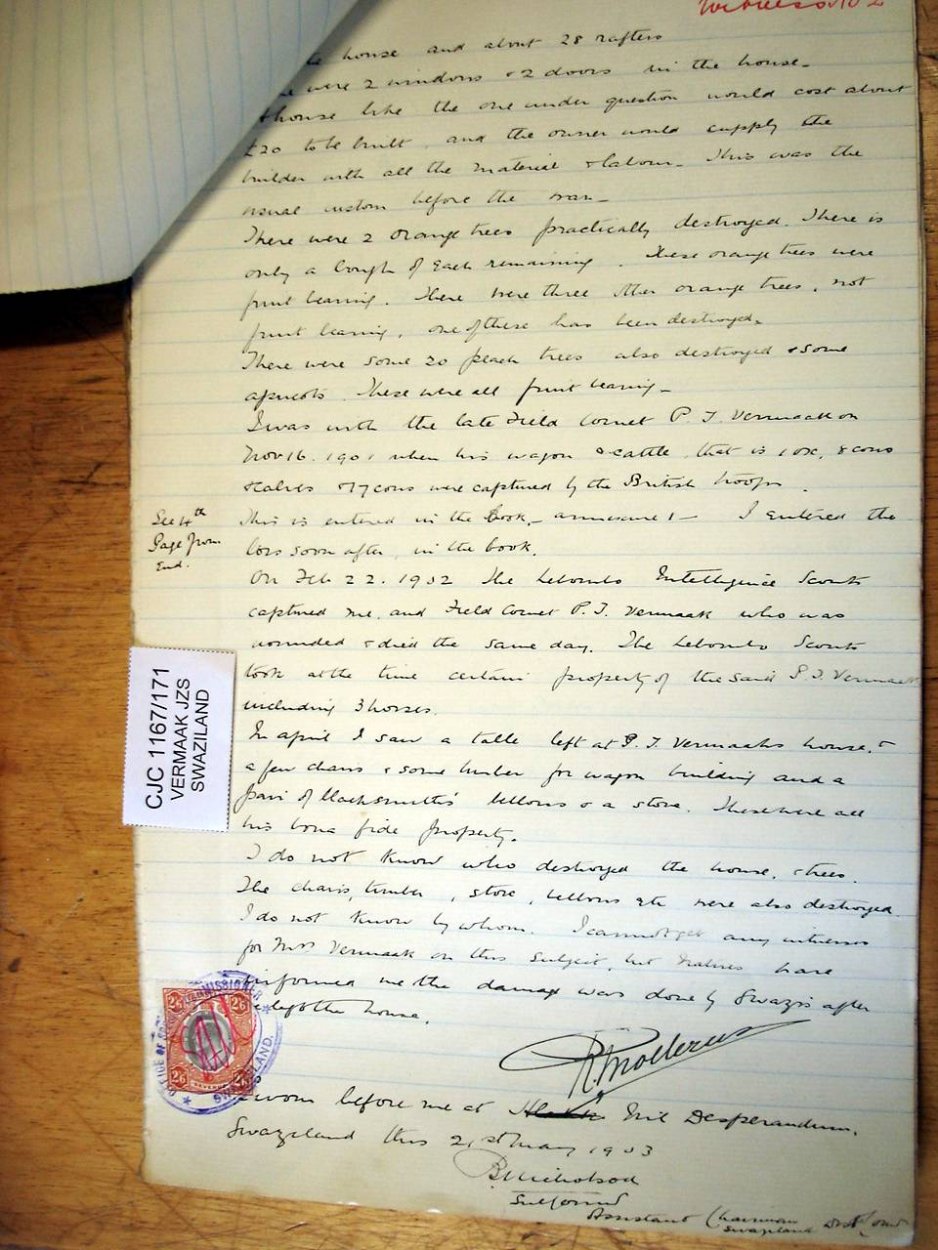 Witness No 2
house and about 28 rafters
were 2 windows & 2 doors in the house.
A house like the one under question would cost about
£20 to be built, and the owner would supply the
builder with all the material & labour. This was the
usual custom before the war.
There were 2 orange trees practically destroyed. There is
only a bough of each remaining. These orange trees were
fruit bearing. There were three other orange trees, not
fruit bearing, one of these has been destroyed.
There were some 20 peach trees also destroyed & some
apricots. These were all fruit bearing.
I was with the late Field Cornet P. J. Vermaak on
Nov 16. 1901 when his wagon & cattle, that is 1 ox, 8 cows
& calves & 17 cows were captured by the British troops.
See 4th
Page from
End.
This is entered in the book, annexure 1 - I entered the
loss soon after, in the book.
On Feb 22. 1902 The Lebombo Intelligence Scouts
captured me, and Field Cornet P. J. Vermaak who was
wounded & died the same day. The Lebombo Scouts
took at the time certain property of the said P J. Vermaak
including 3 horses.
In April I saw a table left at P. J. Vermaaks house, &
a few chairs & some timber for wagon building and a
pair of blacksmiths' bellows & a stove. These were all
his bona fide property.
I do not know who destroyed the house, & trees.
The chairs, timber, stove, bellows etc were also destroyed.
I do not know by whom. I cannot get any witnesses
for Mrs Vermaak on this subject, but natives have
informed me the damage was done by Swazis after
left the house.
Sworn before me at Nil Desperandum,
Swaziland this 21st May 1903
B Nicholson
Assistant Chairman Dist Com
Swaziland
CJC 1167/171
VERMAAK JZS
SWAZILAND
2/6 2/6
2/6 REVENUE
OFFICE OF COMMISSIONER
SWAZILAND